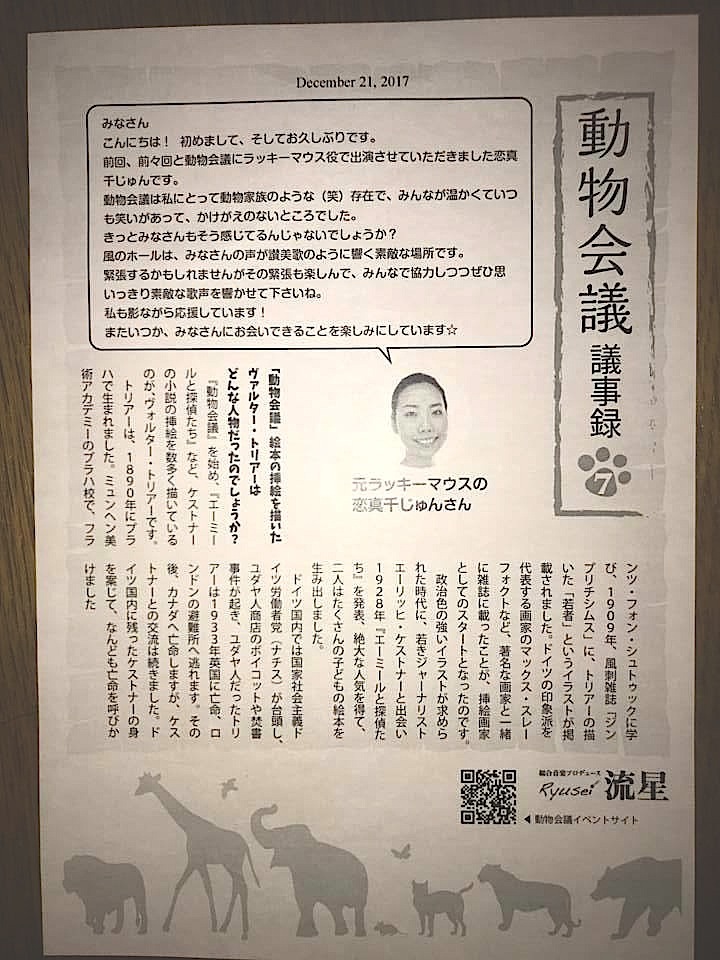 December 21, 2017
動物会議 議事録 7
みなさん
こんにちは！ 初めまして、そしてお久しぶりです。
前回、前々回と動物会議にラッキーマウス役で出演させていただきました恋真
千じゅんです。
動物会議は私にとって動物家族のような（笑）存在で、みんなが温かくていつ
も笑いがあって、かけがえのないところでした。
きっとみなさんもそう感じてるんじゃないでしょうか？
風のホールは、みなさんの声が讃美歌のように響く素敵な場所です。
緊張するかもしれませんがその緊張も楽しんで、みんなで協力しつつぜひ思
いっきり素敵な歌声を響かせて下さいね。
私も影ながら応援しています！
またいつか、みなさんにお会いできることを楽しみにしています☆
元ラッキーマウスの
恋真千じゅんさん
「動物会議」絵本の挿絵を描いた
ヴァルター・トリアーは
どんな人物だったのでしょうか？
『動物会議』を始め、『エーミー
ルと探偵たち』など、ケストナー
の小説の挿絵を数多く描いている
のが、ヴォルター・トリアーです。
トリアーは、1890年にプラ
ハで生まれました。ミュンヘン美
術アカデミーのプラハ校で、フラ
ンツ・フォン・シュトゥックに学
び、1909年、風刺雑誌「ジン
プリチシムス」に、トリアーの描
いた「若者」というイラストが掲
載されました。ドイツの印象派を
代表する画家のマックス・スレー
フォクトなど、著名な画家と一緒
に雑誌に載ったことが、挿絵画家
としてのスタートとなったのです。
政治色の強いイラストが求めら
れた時代に、若きジャーナリスト
エーリッヒ・ケストナーと出会い
1928年『エーミールと探偵た
ち』を発表、絶大な人気を得て、
二人はたくさんの子どもの絵本を
生み出しました。
ドイツ国内では国家社会主義ド
イツ労働者党（ナチス）が台頭し、
ユダヤ人商店のボイコットや焚書
事件が起き、ユダヤ人だったトリ
アーは1933年英国に亡命、ロ
ンドンの避難所へ逃れます。その
後、カナダへ亡命しますが、ケス
トナーとの交流は続きました。ド
イツ国内に残ったケストナーの身
を案じて、なんども亡命を呼びか
けました
総合音楽プロデュース
Ryusei 流星
◀動物会議イベントサイト